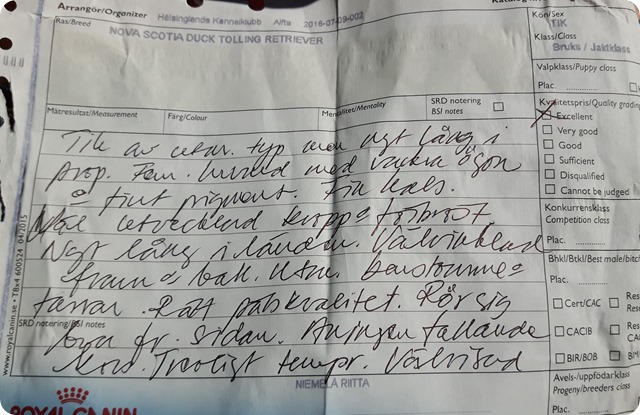 Arrangör/Organizer Hälsinglands Kennelklubb Alfta 2016-07-09-002
Ras/Breed
NOVA SCOTIA DUCK TOLLING RETRIEVER
Kön/Sex
TIK
Klass/Class
Bruks / Jaktklass
Valpklass/Puppy class
Plac.
Mätresultat/Measurement Färg/Colour Mentalitet/Mentality SRD notering BSI notes
Kvalitetspris/Quality grading
Excellent
Very good
Good
Sufficient
Disqualified
Cannot be judged
Konkurrensklass
Competition class
Plac.
Bhkl/Btkl/Best male/bitch
Plac.
Cert/CAC
CACIB
BIR/BOB
Avels-/uppfödarklass
Progeny/breeders class
Plac.
Tik av utm. typ men ngt lång i
prop. Fem. huvud med vackra ögon
o fint pigment. Fin hals.
Väl utvecklad kropp o förbröst.
Ngt lång i länden. Välvinklad
fram o bak. Utm. benstomme o
tassar. Rätt pälskvalitet. Rör sig
bra fr. sidan. Aningen fallande
kors. Trevligt tempr. Välvisad
SRD notering/BSI notes
NIEMELÄ RIITTA
www.royalcanin.se - TBx4 600524 04/2015
ROYAL CANIN